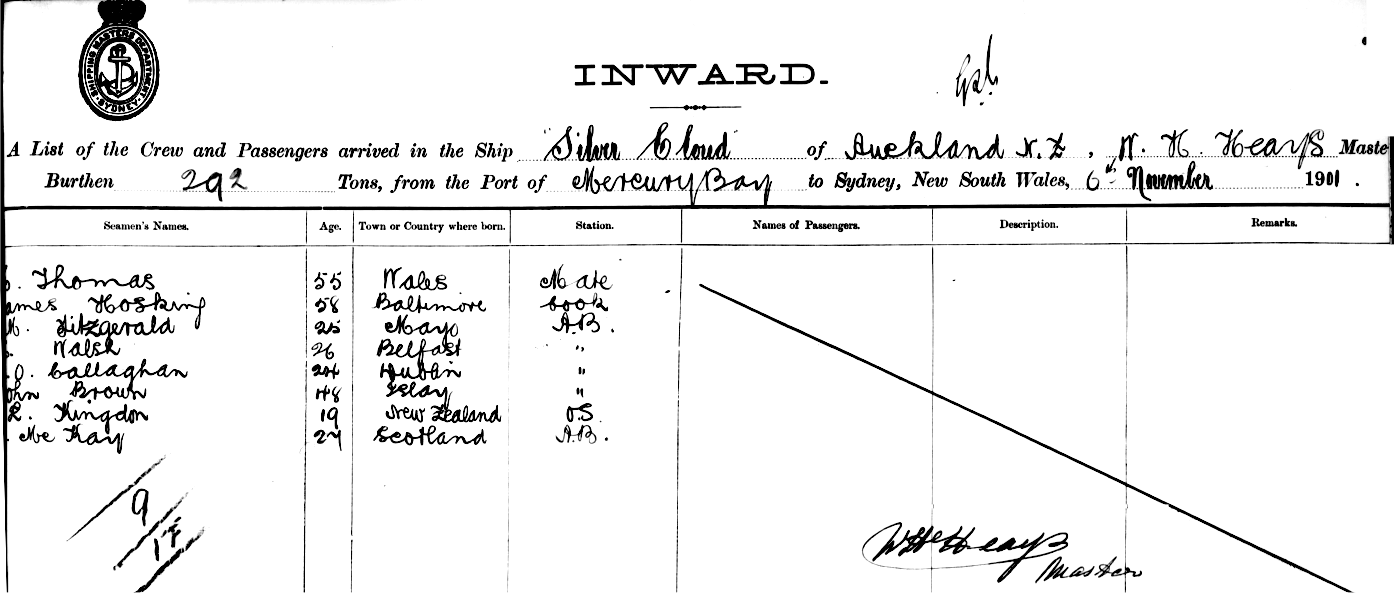 SHIPPING MASTERS DEPARTMENT. SYDNEY
INWARD.
A List of the Crew and Passengers arrived in the Ship "Silver Cloud" of Auckland N.Z, W. H. Heays Maste
Burthen 292 Tons, from the Port of Mercury Bay to Sydney, New South Wales, 6th November 1901.
Seamen's Names. Age. Town or Country where born. Station. Names of Passengers. Description. Remarks.
. Thomas 55 Wales Mate
ames Hosking 58 Baltimore Cook
M. Fitzgerald 25 Mayo A.B.
. Walsh 26 Belfast "
.O. Callaghan 24 Dublin "
ohn Brown 48 Islay "
R. Kingdon 19 New Zealand O.S.
. McKay 27 Scotland A.B.
9
W H Heays
Master